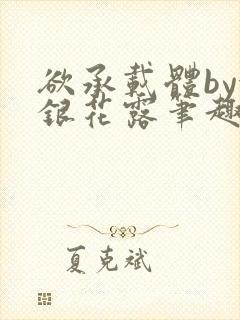 欲承載體by
銀花露筆趣
夏克斌